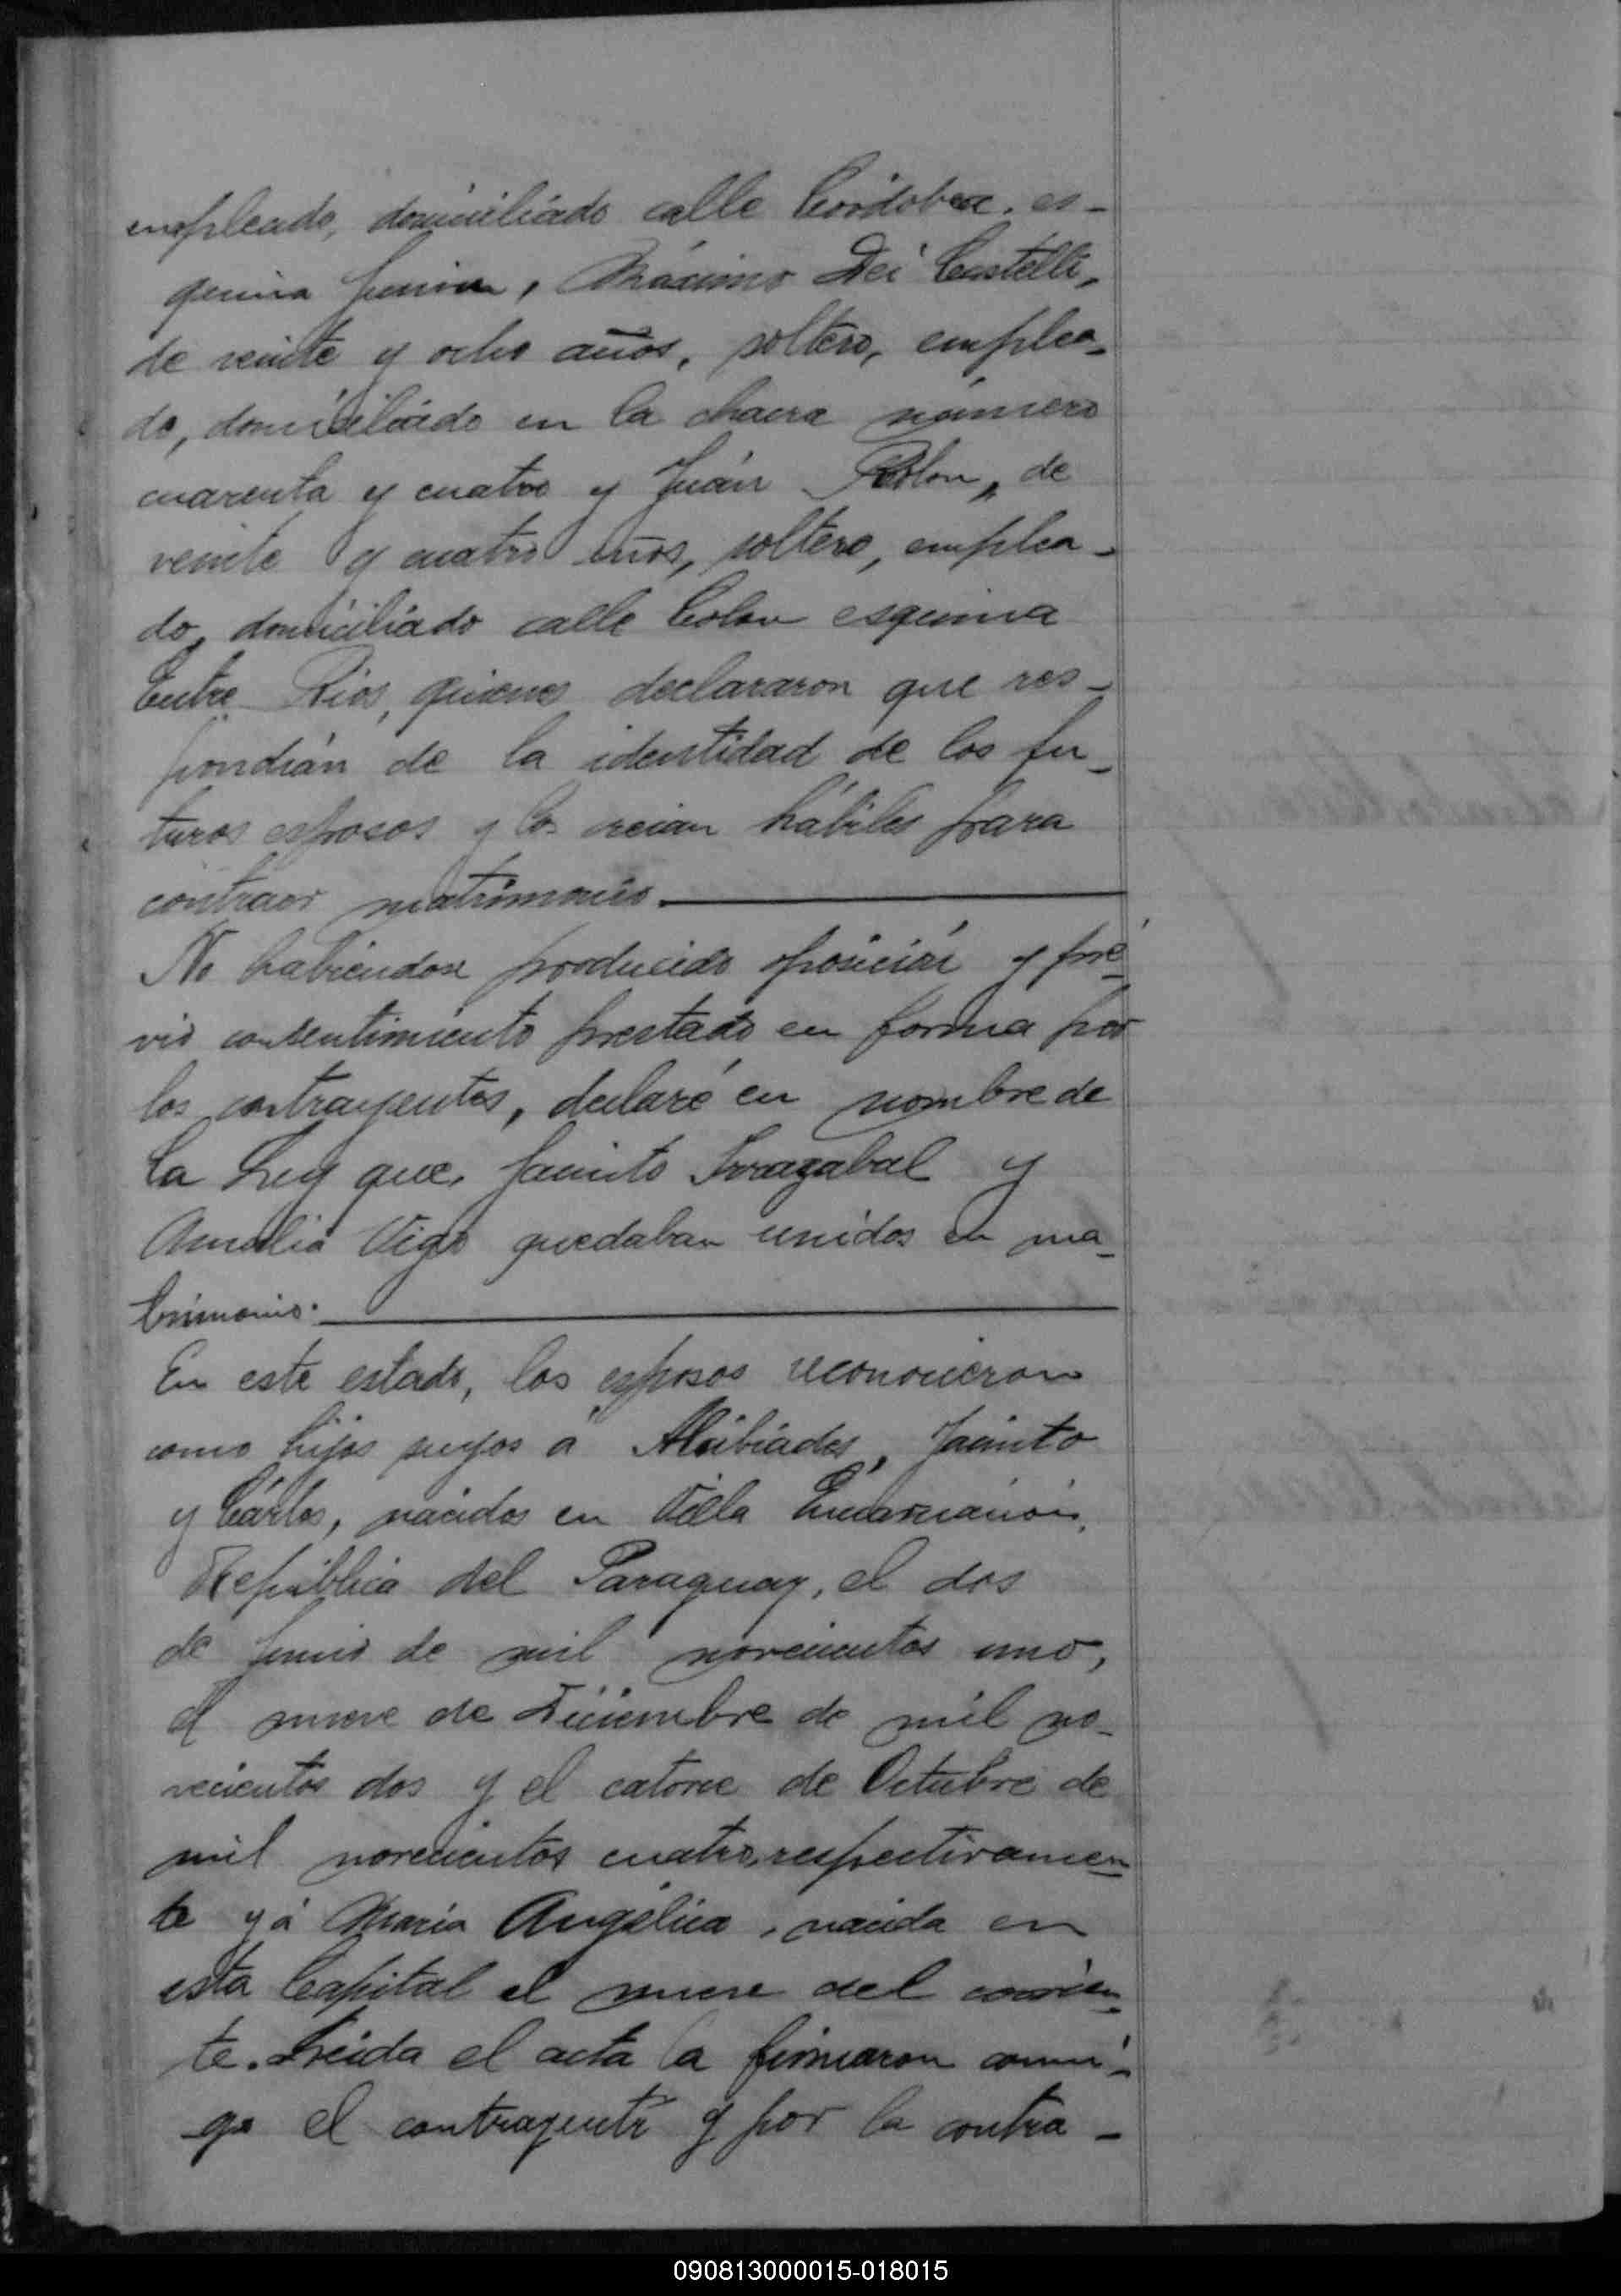 empleado, domiciliado calle Córdoba, es-
quina Junin, Máximo Dei Castelli,
de veinte y ocho años, soltero, emplea-
do, domiciliado en la chacra número
cuarenta y cuatro y Juán Rolon, de
veinte y cuatro años, soltero, emplea-
do, domiciliado calle Colon esquina
Entre Rios, quienes declararon que res-
pondián de la identidad de los fu-
turos esposos y los creian hábiles para
contraer matrimonio.
No habiendose producido oposición y pré-
vio consentimiento prestado en forma por
los contrayentes, declaré en nombre de
la Ley que, Jacinto Irrazabal y
Amalia Vigo quedaban unidos en ma-
trimonio.
En este estado, los esposos reconocieron
como hijos suyos á Alcibiades, Jacinto
y Cárlos, nacidos en Villa Encarnación,
República del Paraguay, el dos
de Junio de mil novecientos uno,
el nueve de Diciembre de mil no-
vecientos dos y el catorce de Octubre de
mil novecientos cuatro, respectivamen-
te y á María Angélica, nacida en
esta Capital el nueve del corrien-
te. Leida el acta la firmaron conmi-
go el contrayente y por la contra-
090813000015-018015